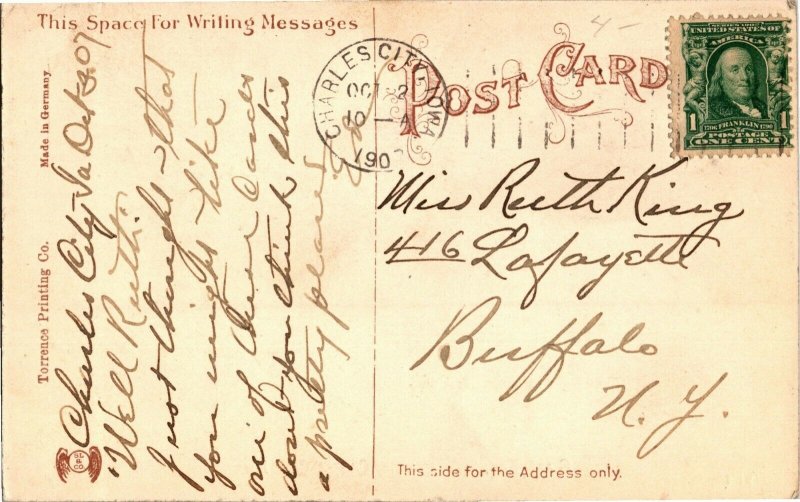 This Space For Writing Messages
Charles City Ia Oct 2 07
"Well Ruth:
Just thought - that
you might like -
one of these cards
don't you think this
a pretty place
Made in Germany
Torrence Printing Co.
SL
&
CO
POST CARD
4-
CHARLES CITY, IOWA
OCT 2
10
190
SERIES 1902
UNITED STATES OF AMERICA
1706 FRANKLIN 1790
1 POSTAGE 1
ONE CENT
Miss Ruth King
416 Lafayette
Buffalo
N. Y.
This side for the Address only.